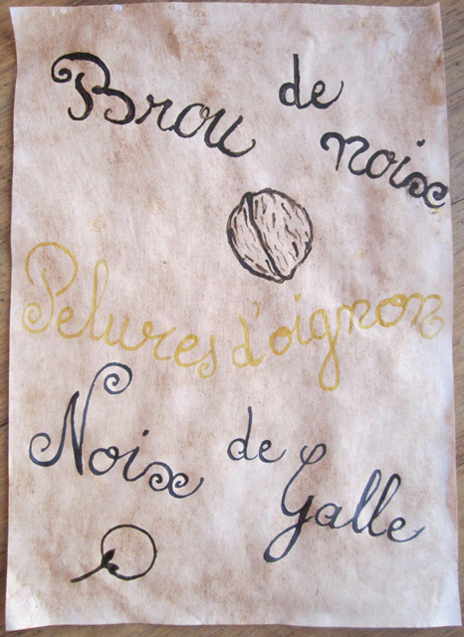 Brou de noix
Pelures d'oignon
Noix de Galle